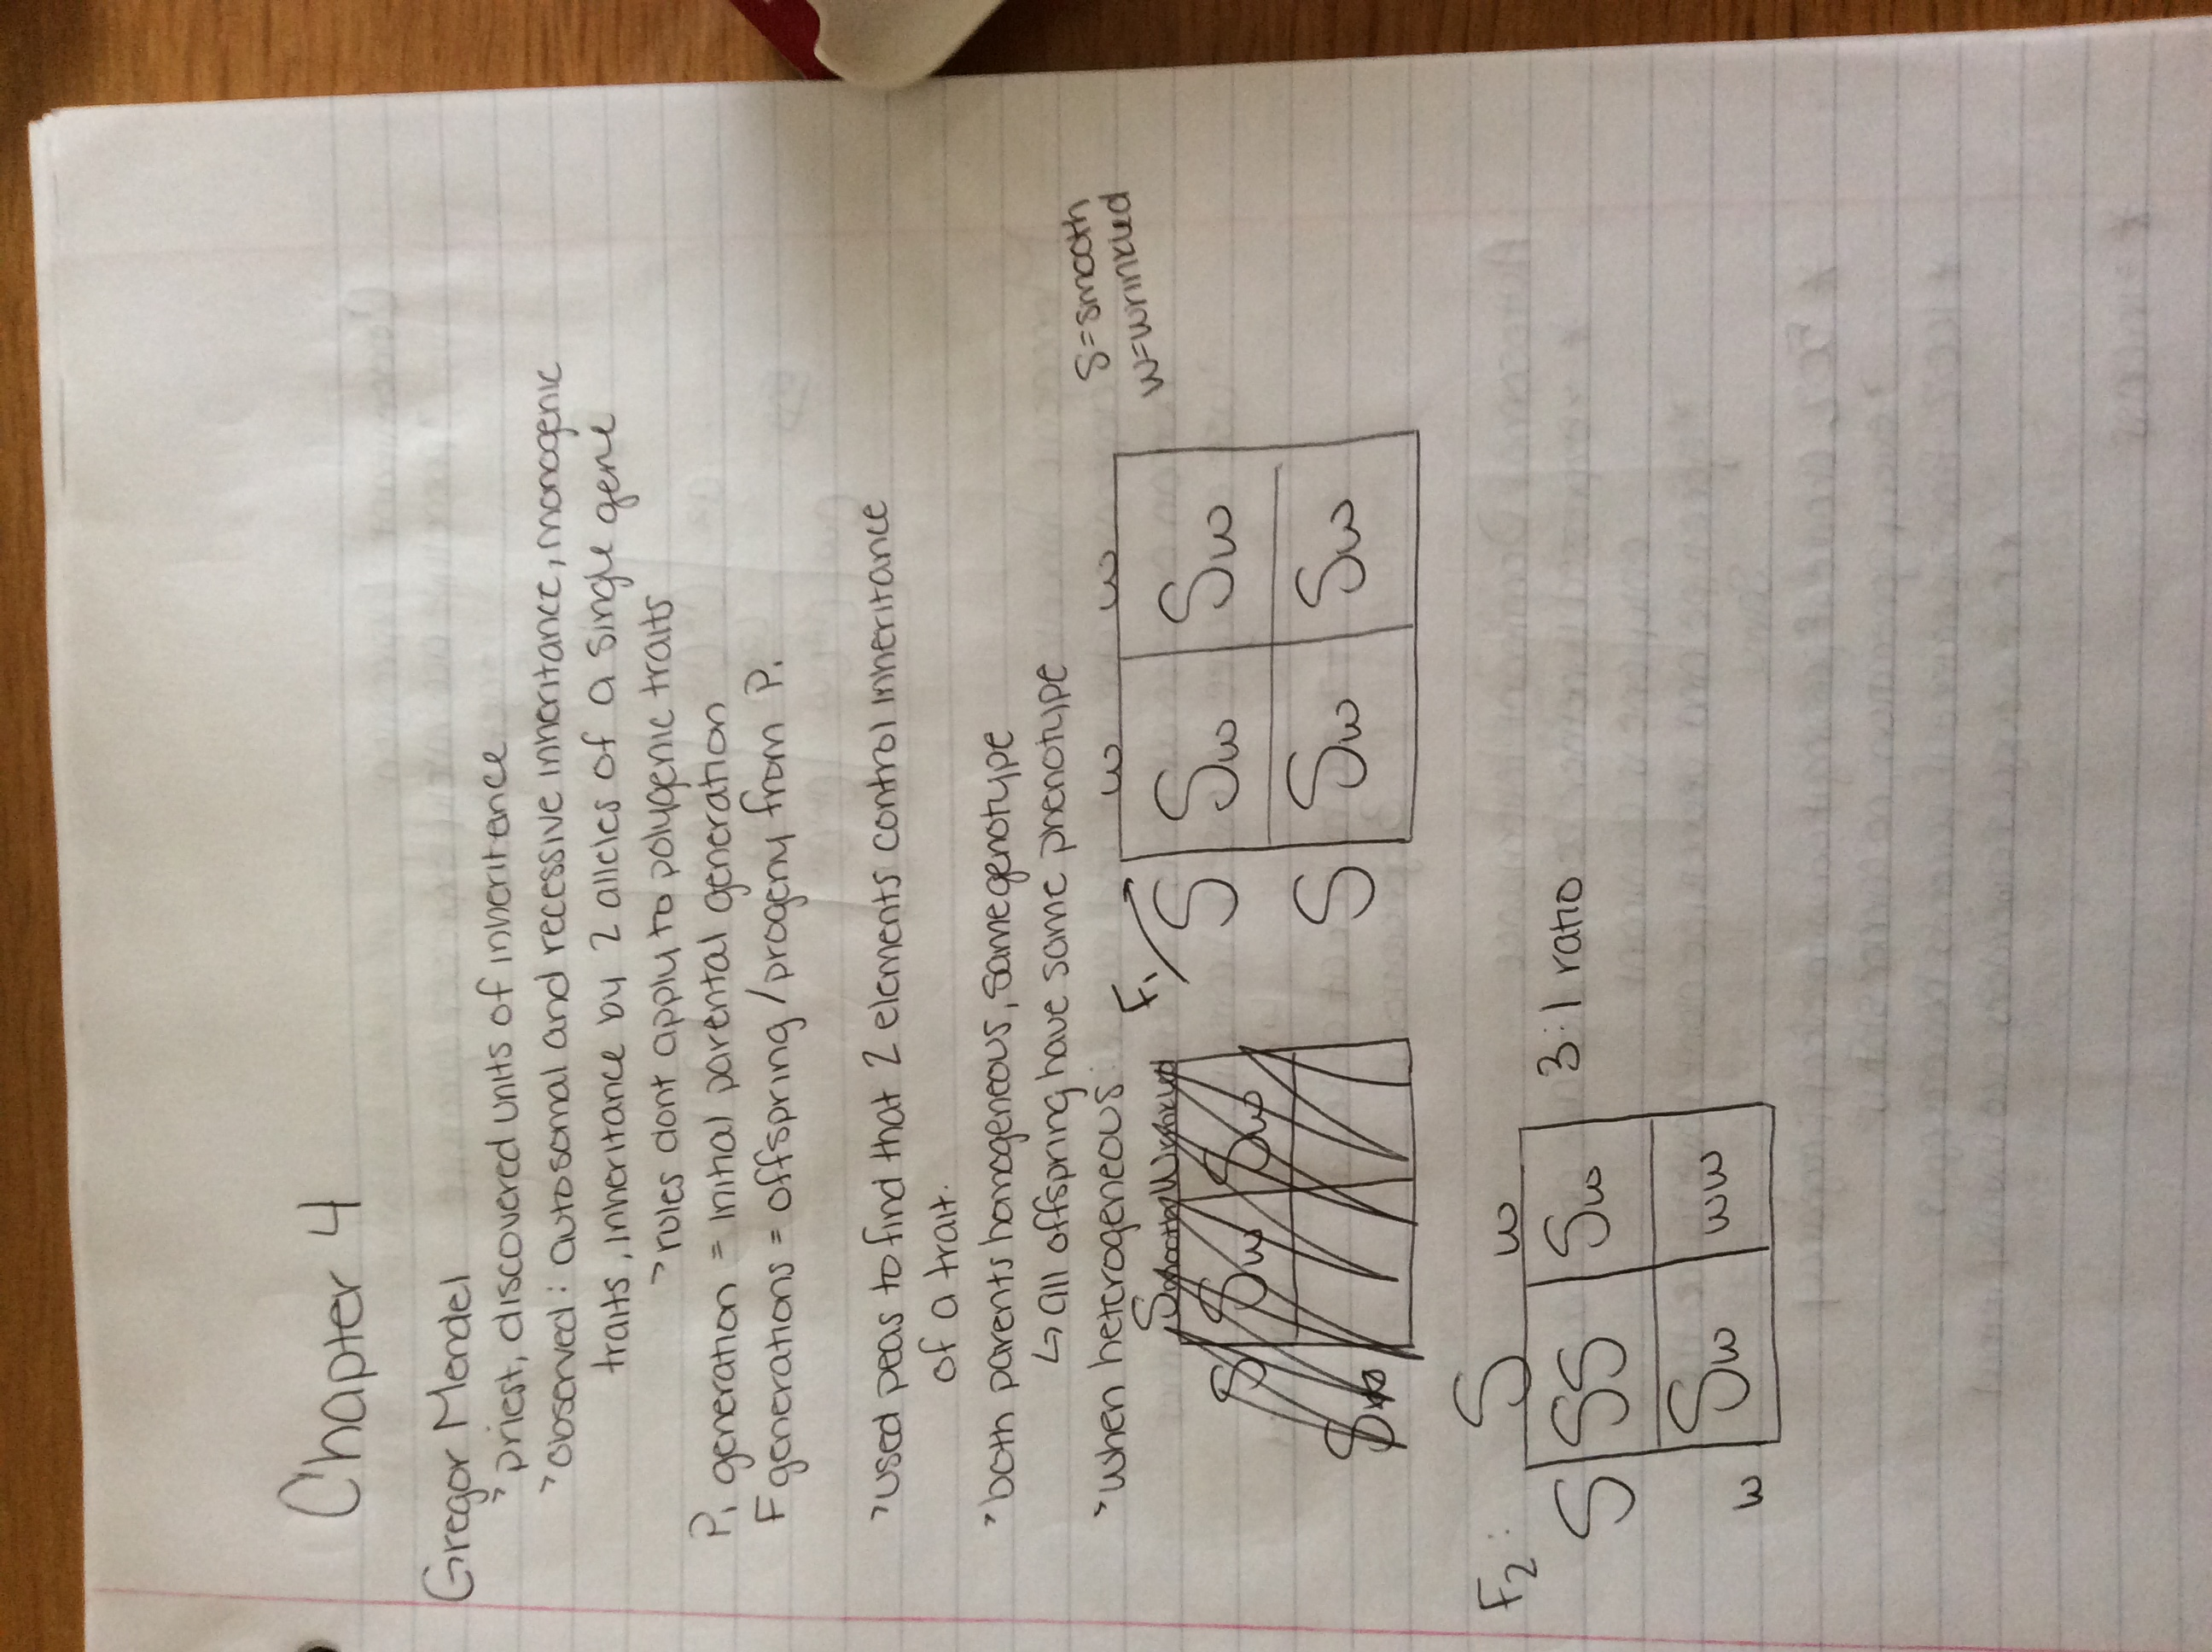 Chapter 4
Gregor Mendel
"priest, discovered units of inheritence
"observed: autosomal and recessive inheritance, monogenic
traits, inheritance by 2 alleles of a single gene
"rules dont apply to polygenic traits
P, generation = initial parental generation
F generations = offspring/progeny from P.
"used peas to find that 2 elements control inheritance
of a trait.
"both parents homogeneous, same genotype
↳ all offspring have same phenotype
"when heterogeneous:
S=smooth
w=wrinkled
F₁
w w
S Sw Sw
S Sw Sw
S
Sw Sw
F₂:
S w
S SS Sw
w Sw ww
3:1 ratio